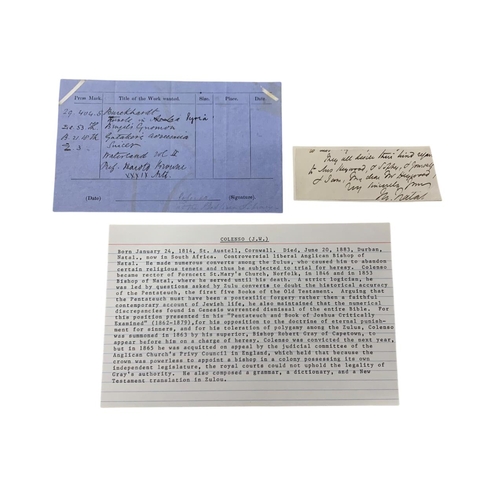 Press Mark. Title of the Work wanted. Size. Place. Date.
Burckhardt
Travels in Syria
Bengel's Gnomon
Suicer
Waterland vol II
Prof. Harold Browne
XXXIX Art.
(Date) (Signature).
They all desire their kind
to Miss Heywood
I am, my dear Mr Heywood,
Very sincerely yours
J W Natal
COLENSO (J.W.)
Born January 24, 1814, St. Austell, Cornwall. Died, June 20, 1883, Durban,
Natal, now in South Africa. Controversial liberal Anglican Bishop of
Natal. He made numerous converts among the Zulus, who caused him to abandon
certain religious tenets and thus be subjected to trial for heresy. Colenso
became rector of Forncett St.Mary's Church, Norfolk, in 1846 and in 1853
Bishop of Natal, where he served until his death. A strict logician, he
was led by questions asked by Zulu converts to doubt the historical accuracy
of the Pentateuch, the first five Books of the Old Testament. Arguing
that the Pentateuch must have been a postexilic forgery rather then a faithful
contemporary account of Jewish life, he also maintained that the numerical
discrepancies found in Genesis warranted dismissal of the entire Bible. For
this profession presented in his "Pentateuch and Book of Joshua Critically
Examined" (1862-1879), for his opposition to the doctrine of eternal punish-
ment for sinners, and for his toleration of polygamy among the Zulus, Colenso
was summoned in 1863 by his superior, Bishop Robert Gray of Capetown, to
appear before him on a charge of heresy. Colenso was convicted the next year,
but in 1865 he was acquitted on appeal by the judicial committee of the
Anglican Church's Privy Council in England, which held that because the
crown was powerless to appoint a bishop in a colony possessing its own
independent legislature, the royal courts could not uphold the legality of
Gray's authority. He also composed a grammar, a dictionary, and a New
Testament translation in Zulou.